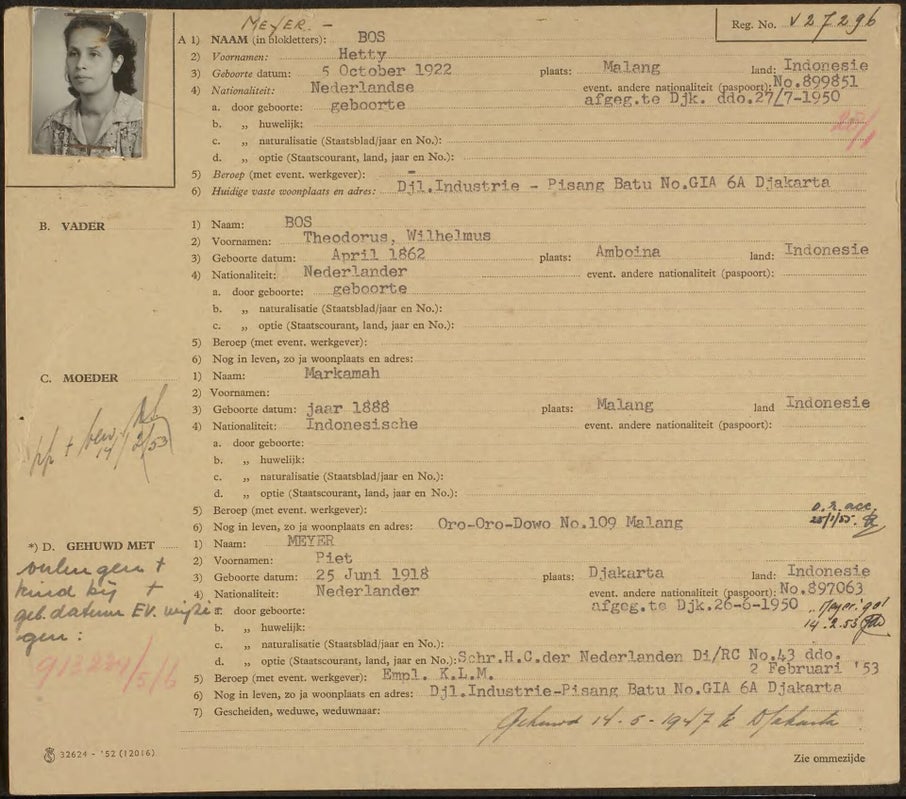 MEYER -
Reg. No. V 27296
A 1) NAAM (in blokletters): BOS
2) Voornamen: Hetty
3) Geboorte datum: 5 October 1922 plaats: Malang land: Indonesie
4) Nationaliteit: Nederlandse event. andere nationaliteit (paspoort): No.899851
a. door geboorte: geboorte afgeg.te Djk. ddo.27/7-1950
b. „ huwelijk:
c. „ naturalisatie (Staatsblad/jaar en No.):
d. „ optie (Staatscourant, land, jaar en No.):
5) Beroep (met event. werkgever): -
6) Huidige vaste woonplaats en adres: Djl.Industrie - Pisang Batu No.GIA 6A Djakarta
B. VADER 1) Naam: BOS
2) Voornamen: Theodorus, Wilhelmus
3) Geboorte datum: April 1862 plaats: Amboina land: Indonesie
4) Nationaliteit: Nederlander event. andere nationaliteit (paspoort):
a. door geboorte: geboorte
b. „ naturalisatie (Staatsblad/jaar en No.):
c. „ optie (Staatscourant, land, jaar en No.):
5) Beroep (met event. werkgever):
6) Nog in leven, zo ja woonplaats en adres:
C. MOEDER 1) Naam: Markamah
2) Voornamen:
3) Geboorte datum: jaar 1888 plaats: Malang land Indonesie
4) Nationaliteit: Indonesische event. andere nationaliteit (paspoort):
a. door geboorte:
b. „ huwelijk:
c. „ naturalisatie (Staatsblad/jaar en No.):
d. „ optie (Staatscourant, land, jaar en No.):
5) Beroep (met event. werkgever):
6) Nog in leven, zo ja woonplaats en adres: Oro-Oro-Dowo No.109 Malang
*) D. GEHUWD MET 1) Naam: MEYER
2) Voornamen: Piet
3) Geboorte datum: 25 Juni 1918 plaats: Djakarta land: Indonesie
4) Nationaliteit: Nederlander event. andere nationaliteit (paspoort): No.897063
a. door geboorte: afgeg.te Djk.26-6-1950
b. „ huwelijk: 14.2.53
c. „ naturalisatie (Staatsblad/jaar en No.):
d. „ optie (Staatscourant, land, jaar en No.): Schr.H.C.der Nederlanden Di/RC No.43 ddo. 2 Februari '53
5) Beroep (met event. werkgever): Empl. K.L.M.
6) Nog in leven, zo ja woonplaats en adres: Djl.Industrie-Pisang Batu No.GIA 6A Djakarta
7) Gescheiden, weduwe, weduwnaar:
Gehuwd 14-5-1947 te Djakarta
kind bij +
geb. datum EV. wijzi
gen:
32624 - '52 (12016)
Zie ommezijde